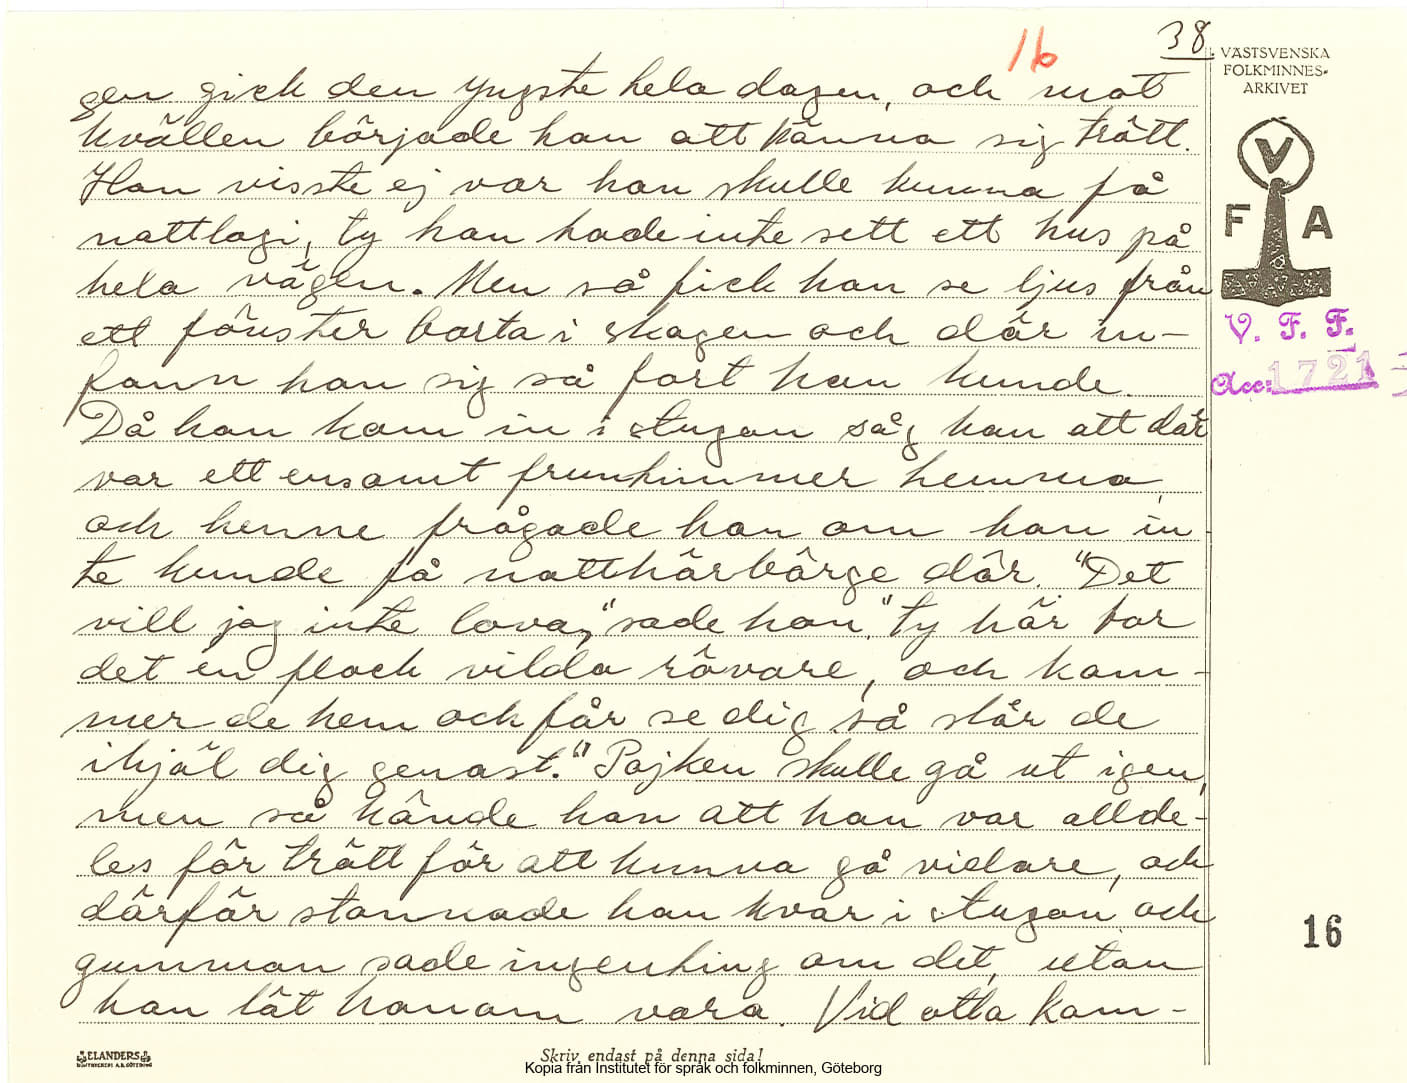 38
16
VÄSTSVENSKA
FOLKMINNES-
ARKIVET
V
F A
V. F. F.
Acc: 1721
gen gick den yngste hela dagen, och mot
kvällen började han att känna sig trött.
Han visste ej var han skulle kunna få
nattlogi, ty han hade inte sett ett hus på
hela vägen. Men så fick han se ljus från
ett fönster borta i skogen och där in-
fann han sig så fort han kunde.
Då han kom in i stugan såg han att där
var ett ensamt frunhimmer hemma,
och henne frågade han om han in-
te kunde få natthärbärge där. "Det
vill jag inte lova," sade hon, "ty här bor
det en flock vilda rövare, och kom-
mer de hem och får se dig så slår de
ihjäl dig genast." Pojken skulle gå ut igen,
men så kände han att han var allde-
les för trött för att kunna gå vidare, och
därför stannade han kvar i stugan och
gumman sade ingenting om det, utan
hon lät honom vara. Vid otta kom-
16
ELANDERS
Skriv endast på denna sida!
Kopia från Institutet för språk och folkminnen, Göteborg